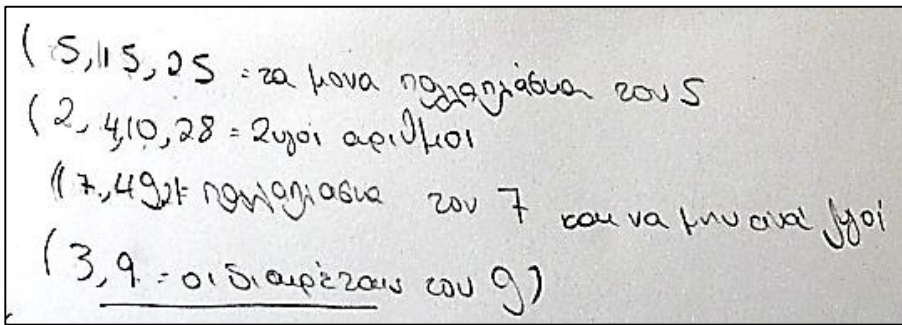 (5, 15, 25 = τα μονα πολλαπλάσια του 5
(2, 4, 10, 28 = Ζυγοί αριθμοι
(7, 49, 21 = πολλαπλασια του 7 και να μην είναι ζυγοί
(3, 9 = οι διαιρέταις του 9)